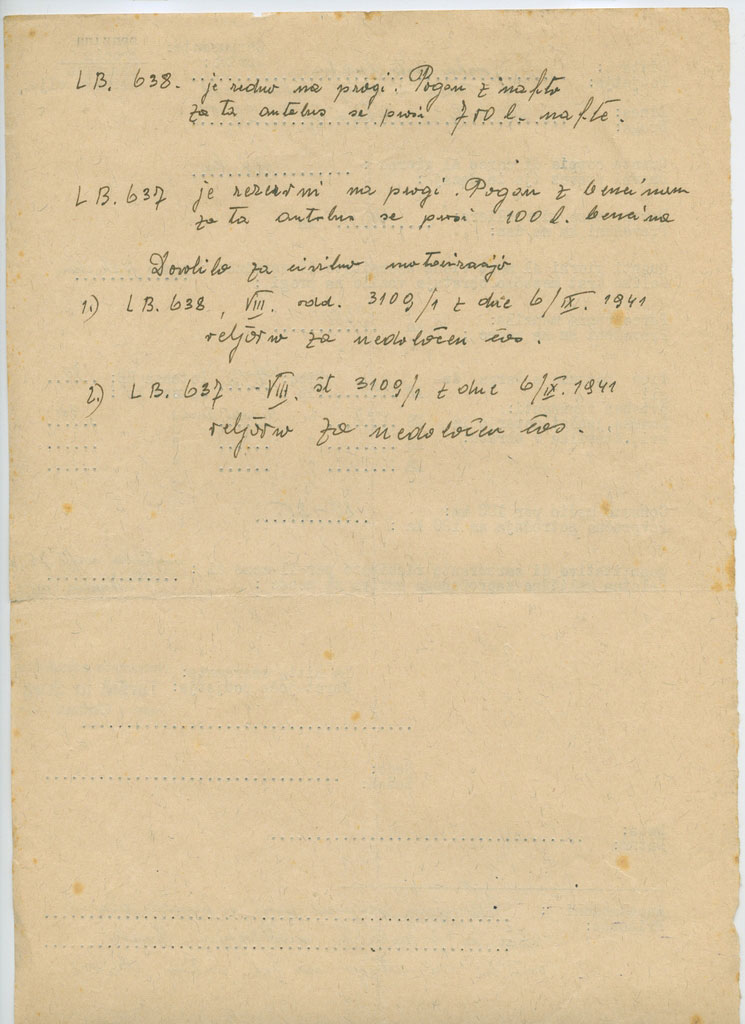 LB. 638. je redno na progi. Pogon z nafto
za ta autobus se prosi 750 l. nafte.
LB. 637 je rezervni na progi. Pogon z bencinom
za ta autobus se prosi 100 l. bencina
Dovolilo za civilno motorizacijo
1.) LB. 638, VIII. odd. 3109/1 z dne 6/IX. 1941
veljavno za nedoločen čas.
2.) LB. 637 VIII. št 3109/1 z dne 6/IX. 1941
veljavno za nedoločen čas.